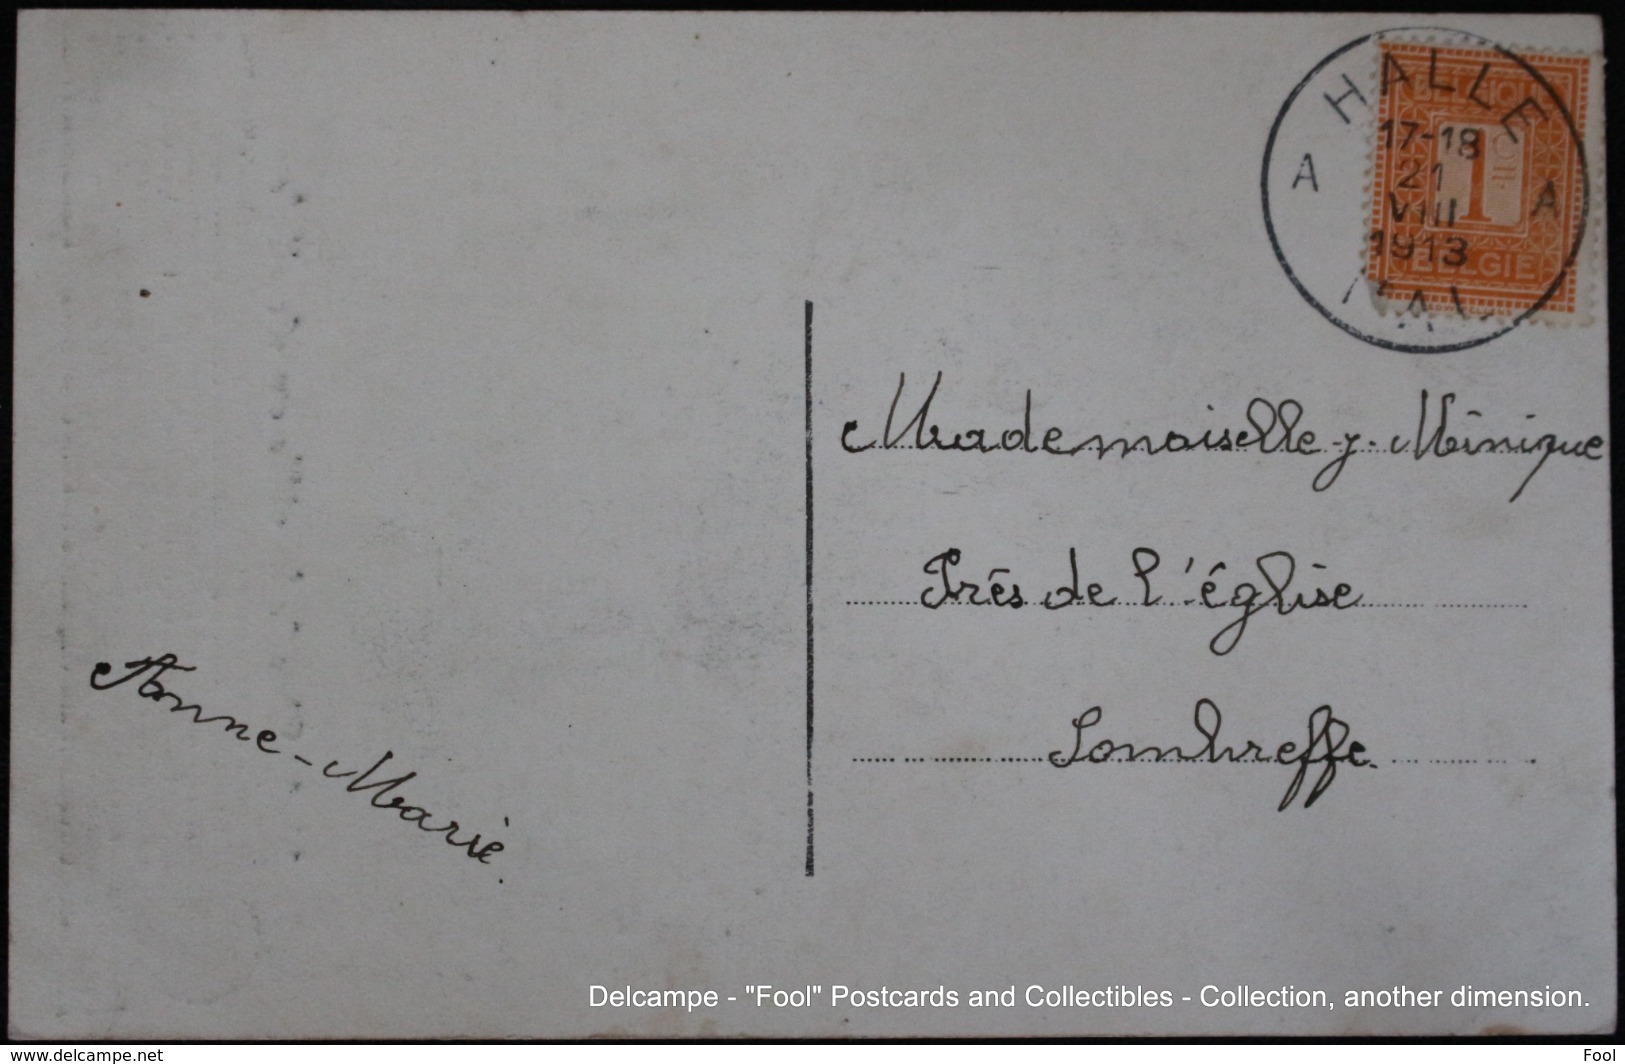 HALLE
A A
17-18
21
VIII
1913
HAL
BELGIQUE
1
BELGIË
Mademoiselle J. Minique
Près de l'église
Sombreffe.
Anne-Marie.
Delcampe - "Fool" Postcards and Collectibles - Collection, another dimension.
www.delcampe.net
Fool